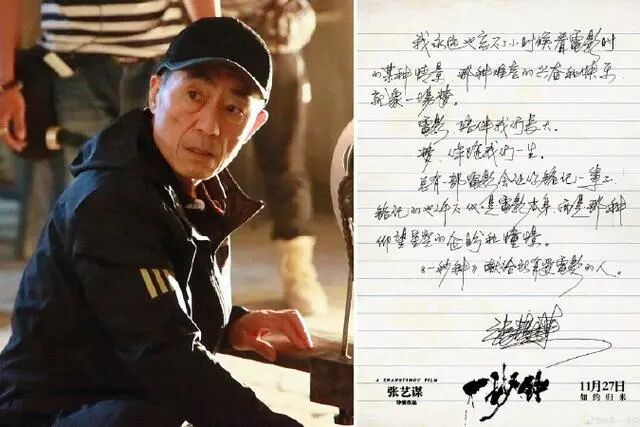 我永远也忘不了小时候看電影时
的某种情景,那种难言的兴奋和快乐,
就象一场梦。
電影,陪伴我们长大。
梦,伴随我们一生。
总有一部電影会让你铭记一辈子,
铭记的也许不仅是電影本身,而是那种
仰望星空的企盼和憧憬。
《一秒钟》献给所有爱電影的人。
张艺谋
A ZHANG YIMOU FILM
张艺谋
导演作品
一秒钟
11月27日
如约归来